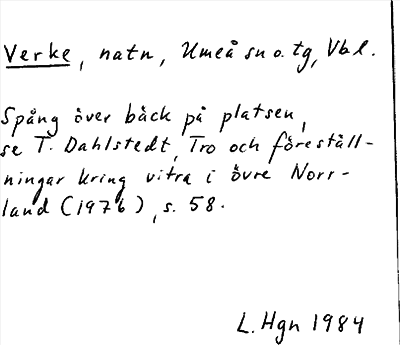 Verke, natn, Umeå sn o. tg, Vbl.
Spång över bäck på platsen,
se T. Dahlstedt, Tro och föreställ-
ningar kring vitra i övre Norr-
land (1976), s. 58.
L. Hgn 1984